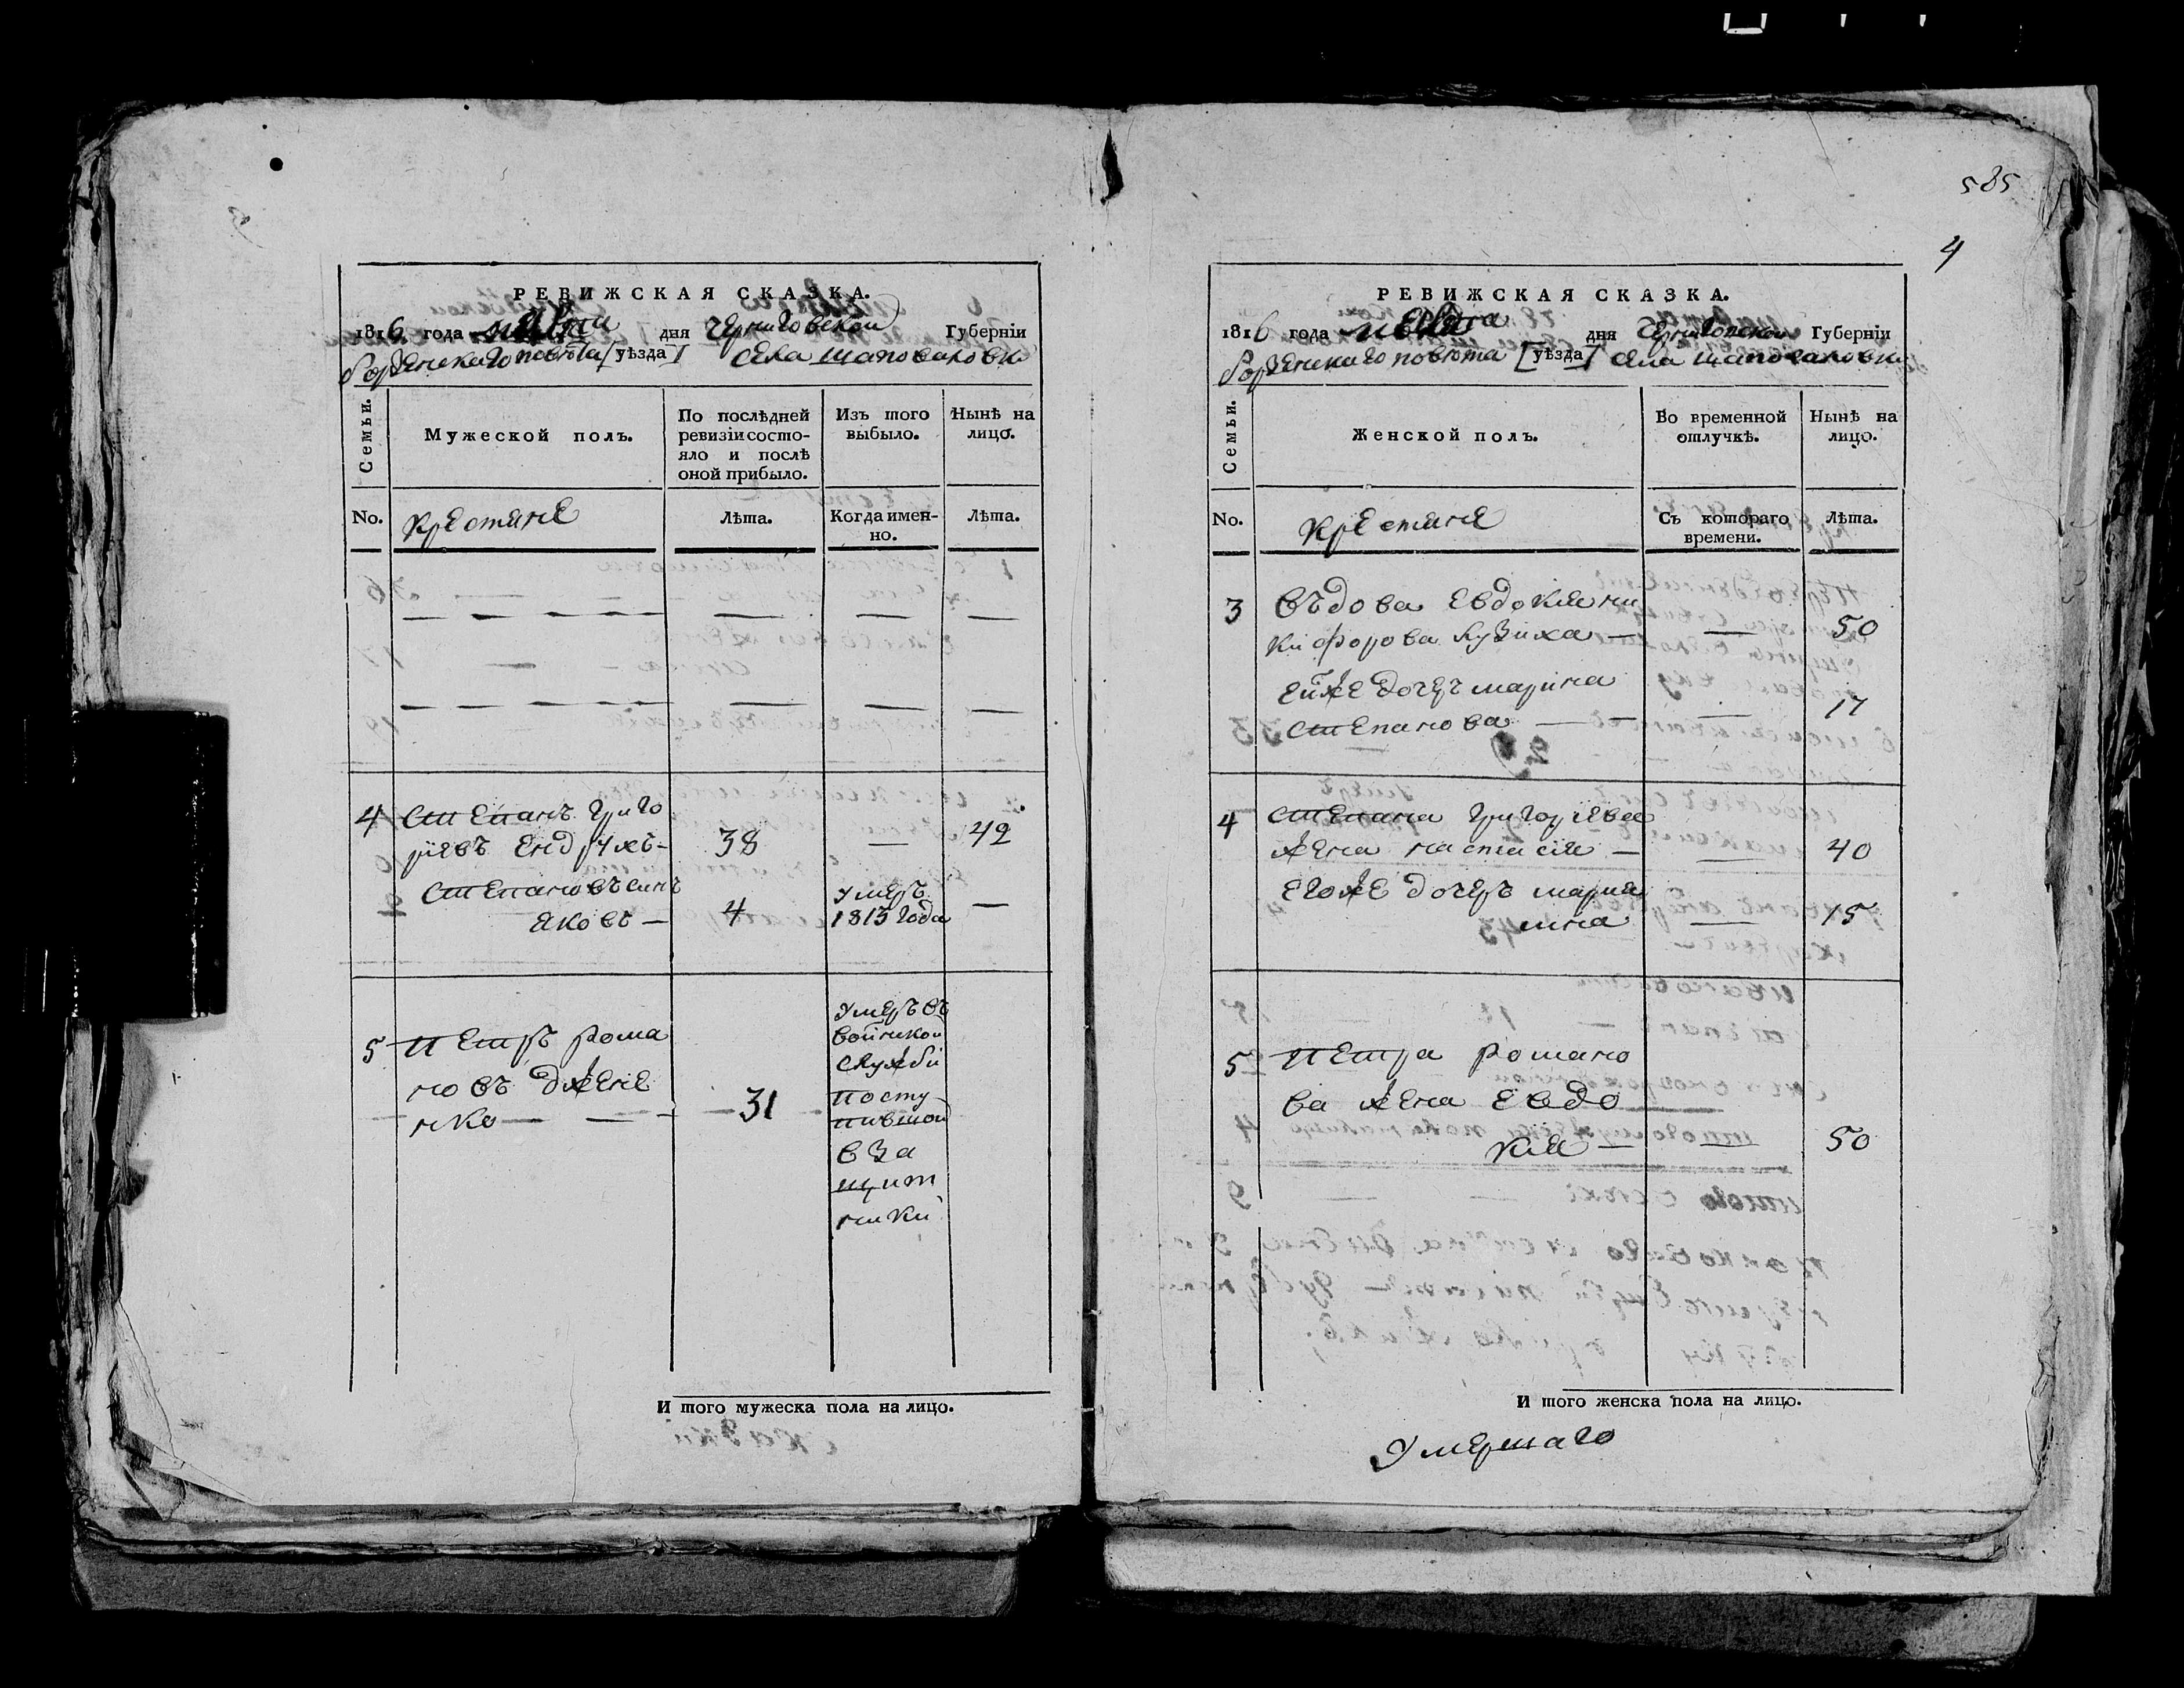 585
4
РЕВИЖСКАЯ СКАЗКА.
1816 года марта дня Черниговской Губерніи
Борзенскаго повѣта [уѣзда] села шаповаловки
Семьи.
Мужеской полъ.
По послѣдней ревизіи состояло и послѣ оной прибыло.
Изъ того выбыло.
Нынѣ на лицо.
No.
крестяне
Лѣта.
Когда именно.
Лѣта.
4 Степанъ Григо
ріевъ Ендрухъ 38 — 42
Степановъ синъ Умеръ
Яковъ — 4 1813 года —
5 Петръ Рома
новъ джене
нко — 31
Умеръ въ
воинской
службі
посту
пившой
в За
щит
ники
И того мужеска пола на лицо.
РЕВИЖСКАЯ СКАЗКА.
1816 года марта дня Черниговской Губерніи
Борзенскаго повѣта [уѣзда] села шаповаловки
Семьи.
Женской полъ.
Во временной отлучкѣ.
Нынѣ на лицо.
No.
крестяне
Съ котораго времени.
Лѣта.
3 Въдова Евдокия ни
кифорова Кузиха — — 50
ей же дочеръ марина
Степанова — — 17
4 Степана Григоріева
жена настасія — — 40
его же дочеръ мария
мна — 15
5 Петра Романо
ва жена Евдо
кія — — 50
И того женска пола на лицо.
Умершаго